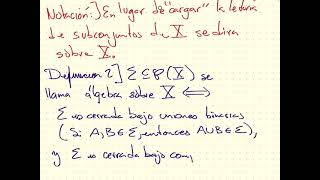 Notación:] En lugar de "cargar" la leyenda
de subconjuntos de X se dira
sobre X.
Definición 2] Σ ⊆ P(X) se
llama álgebra sobre X ⟺
Σ es cerrada bajo uniones binarias
(Si A,B∈Σ, entonces A∪B∈Σ),
y Σ es cerrada bajo com,